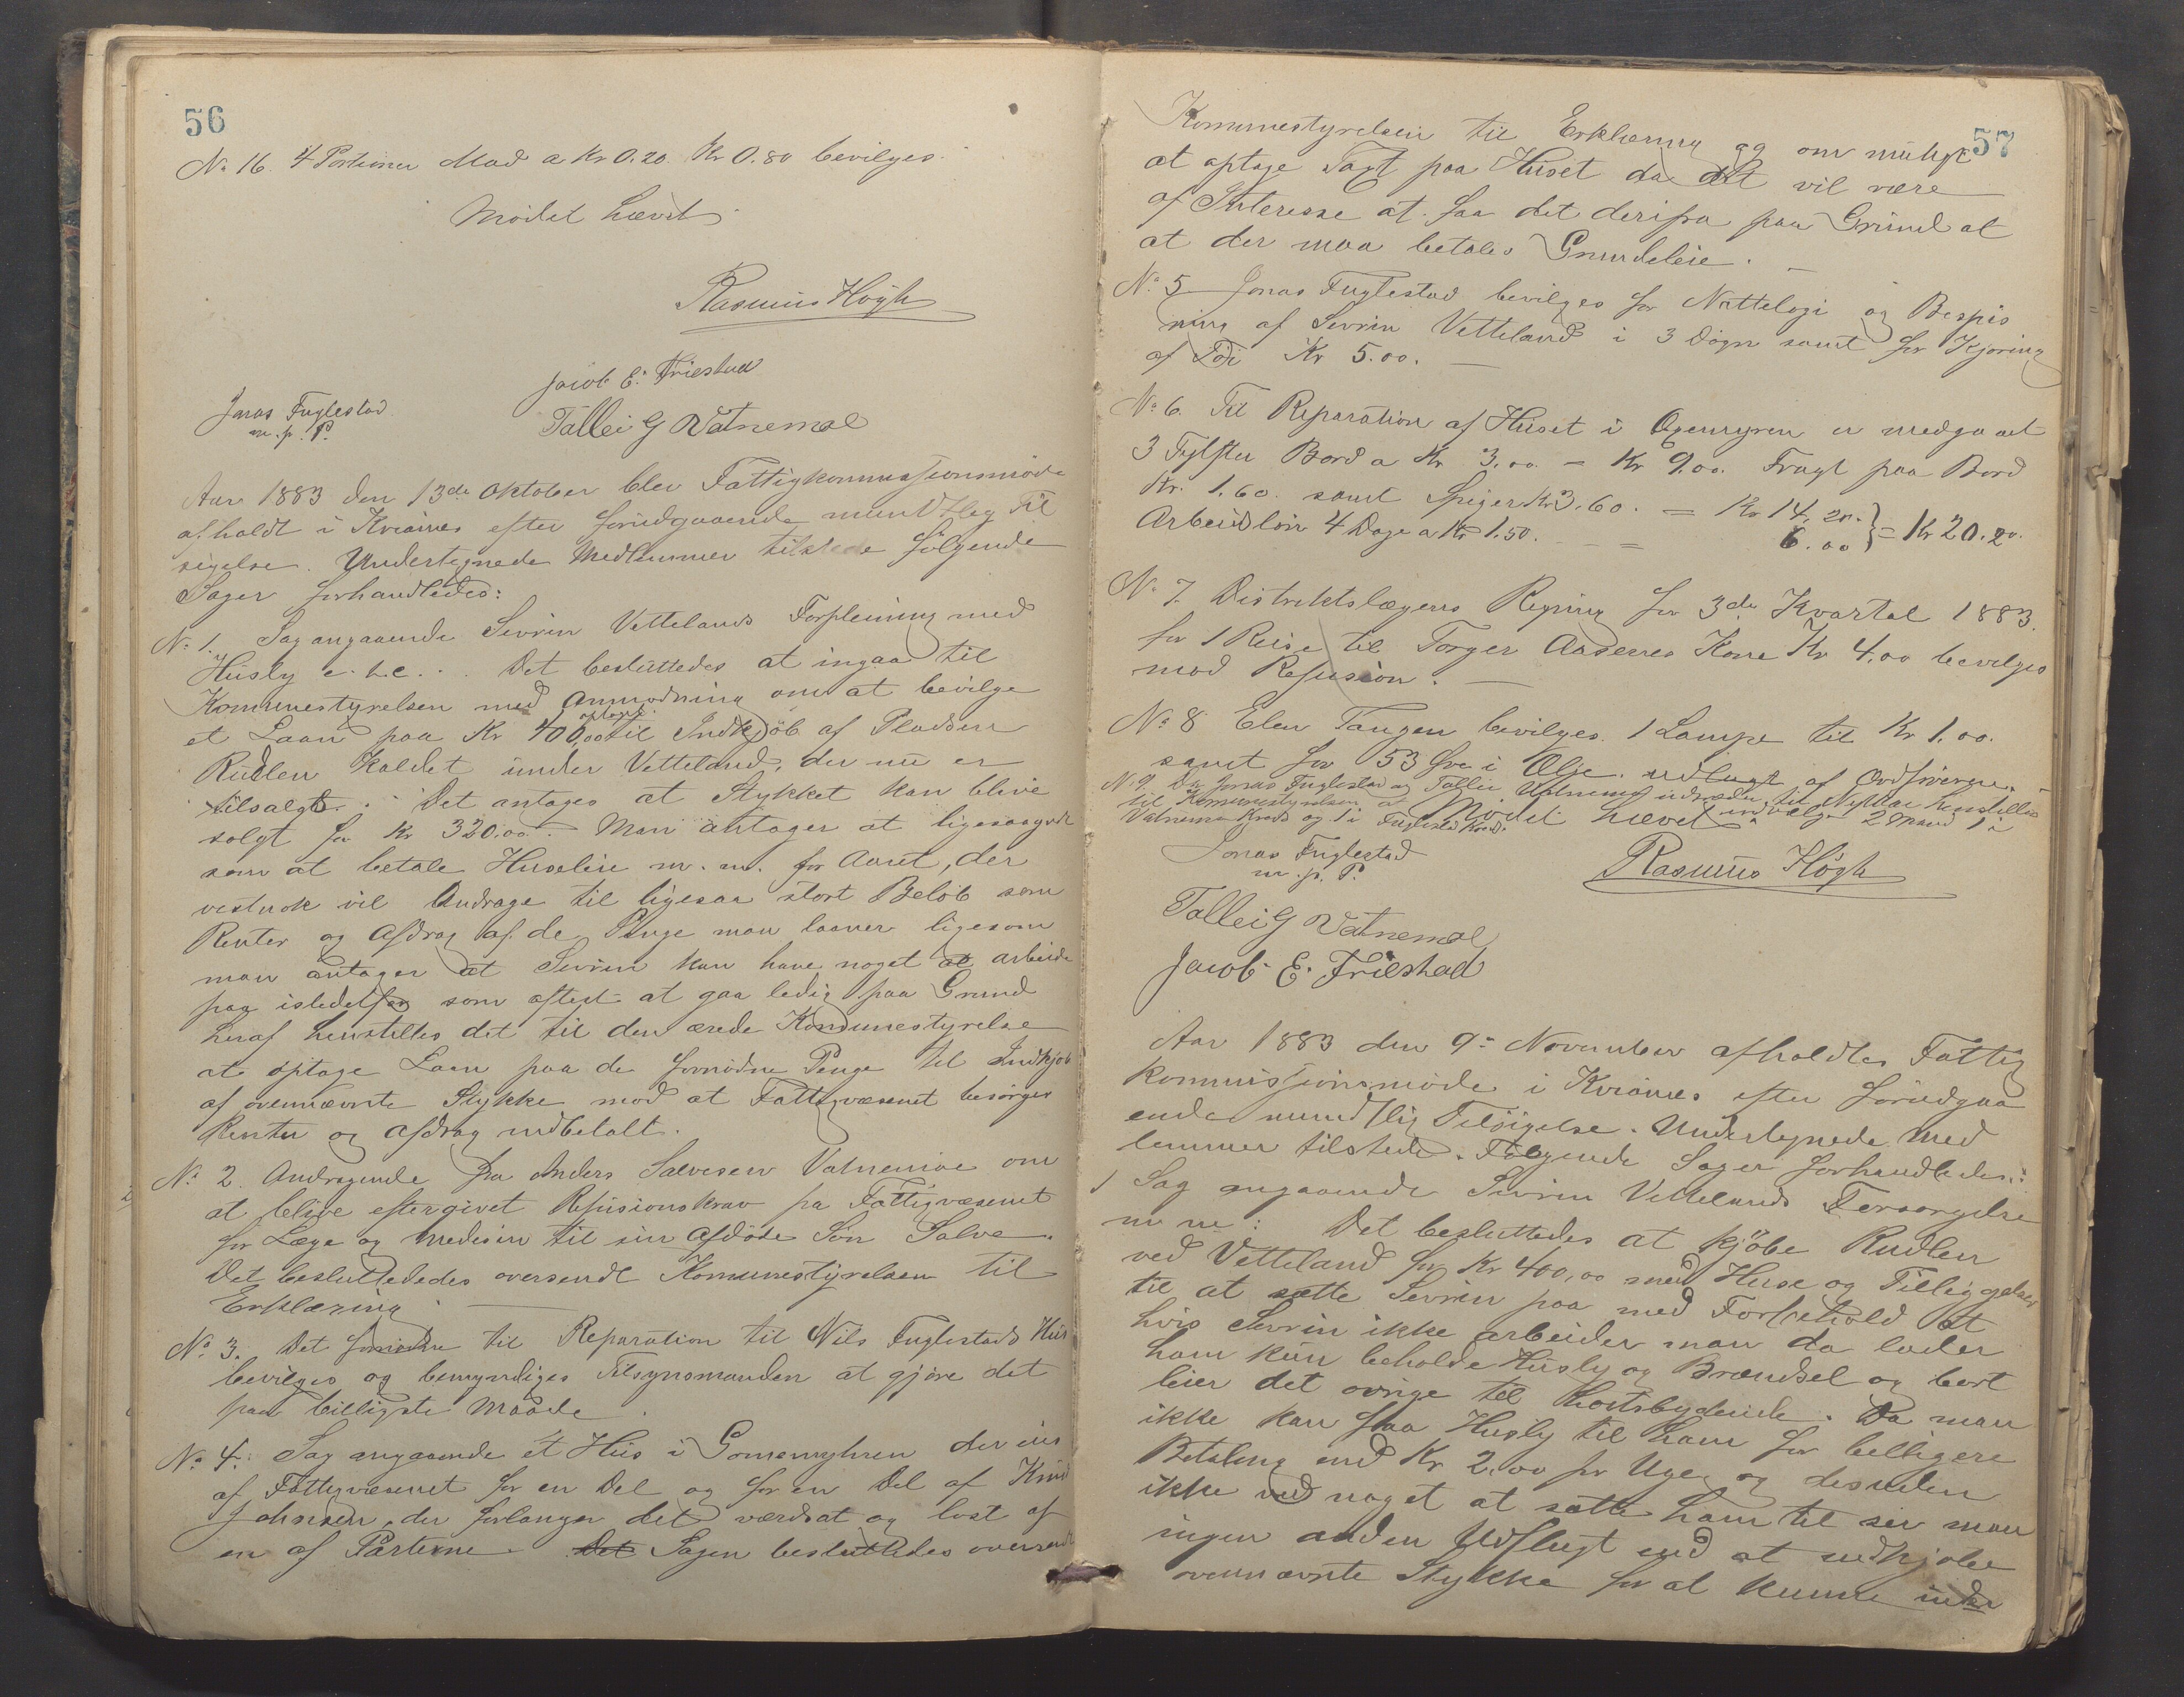 56
No 16. 4 Portioner Mad a Kr 0.20 Kr 0.80 bevilges.
Mödet hævet
Rasmus Högh
Jacob E. Friestad
Jonas Fuglestad
m. p. P.
Tallei G Vatnemoe
Aar 1883 den 13de Oktober blev Fattigkommissionsmöde
afholdt i Kviaines efter forudgaaende mundtlig Til
sigelse. Undertegnede Medlemmer tilstede følgende
Sager forhandledes:
No 1. Sag angaaende Sevrin Vettelands Forpleining med
Husly e. h. c. . Det besluttedes at ingaa til
Kommunestyrelsen med Anmodning om at bevilge
et Laan paa Kr 400,00 optaget til Indkjöb af Pladsen
Rudlen kaldet under Vetteland, der nu er
tilsalgs. Det antages at Stykket kan blive
solgt for Kr 320.00. Man antager at ligesaagodt
som at betale Husleie m. m. for Aaret, der
vestnok vil Andrage til ligesaa stort Belöb som
Renter og Afdrag af de Penge man laaner ligesom
man antager at Sevrin kan have noget at arbeide
paa istedetfor som oftest at gaa ledig paa Grund
heraf henstilles det til den ærede Kommunestyrelse
at optage Laan paa de fornødne Penge til Indkjøb
af ovennævnte Stykke mod at Fattigvæsenet besørges
Renter og Afdrag indbetalt.
No 2. Andragende fra Anders Salvesen Vatnemoe om
at blive eftergivet Refusionskrav fra Fattigvæsenet
for Læge og Medesin til sin Afdöde Sön Salve.
Det besluttededes oversendt Kommunestyrelsen til
Erklæring.
No 3. Det fornødne til Reparation til Nils Fuglestads Hus
bevilges og bemyndiges Tilsynsmanden at gjöre det
paa billigste Maade.
No 4. Sag angaaende et Hus i der eies
af Fattigvæsenet for en Del og for en Del af Knud
Johnsen, der forlanger det værdsat og löst af
en af Parterne. Det Sagen besluttedes oversendt
57
Kommunestyrelsen til Erklæring og om muligt
at optage Taxt paa Huset da det vil være
af Interesse at faa det derifra paa Grund af
at der maa betales Grundeleie.
No 5 Jonas Fuglestad bevilges for Nattelogi og Bespis
ning af Sevrin Vetteland i 3 Dögn samt for Kjøring
af Töi Kr 5.00.
No 6. Til Reparation af Huset i Oxemyren er medgaaet
3 Tylfter Bord a Kr 3.00 = Kr 9.00. Fragt paa Bord
Kr. 1.60. samt Spiger Kr 3.60. = Kr 14,20. } = Kr 20.20.
Arbeidslön 4 Dage a Kr 1.50. = 6.00
No 7. Distriktslægens Regning for 3de Kvartal 1883.
for 1 Reise til Torger Aasenes Kone Kr 4,00 bevilges
mod Refusion.
No 8 Elen Tangen bevilges 1 Lampe til Kr 1.00.
samt for 53 Øre i Olje. udlagt af Ordføreren.
No 9. Da Jonas Fuglestad og Tallei Vatnemoe udtræder, til Nytaar henstilles
til Komunestyrelsen at indvælge 2 Mænd 1 i
Vatnemo Kreds og 1 i Fuglestad Kreds.
Mödet hævet
Jonas Fuglestad
m. p. P.
Rasmus Högh
Tallei G Vatnemoe
Jacob E. Friestad
Aar 1883 den 9de November afholdtes Fattig
kommissionsmöde i Kviaines efter forudgaa
ende mundtlig Tilsigelse. Undertegnede Med
lemmer tilstede. Følgende Sager forhandledes:
1 Sag angaaende Sevrin Vettelands Forsorgelse
m m: Det besluttedes at kjöbe Rudlen
ved Vetteland for Kr 400,00 med Huse og Tilliggelser
til at sætte Sevrin paa med Forbehold at
hvis Sevrin ikke arbeider man da lader
ham kun beholde Husly og Brændsel og bort
leier det øvrige til Høistbydende. Da man
ikke kan faa Husly til ham for billigere
Betaling end Kr 2.00 pr Uge og desuden
ikke ved noget at sætte ham til ser man
ingen anden Udflugt end at indkjøbe
ovennævnte Stykke for at kunne under